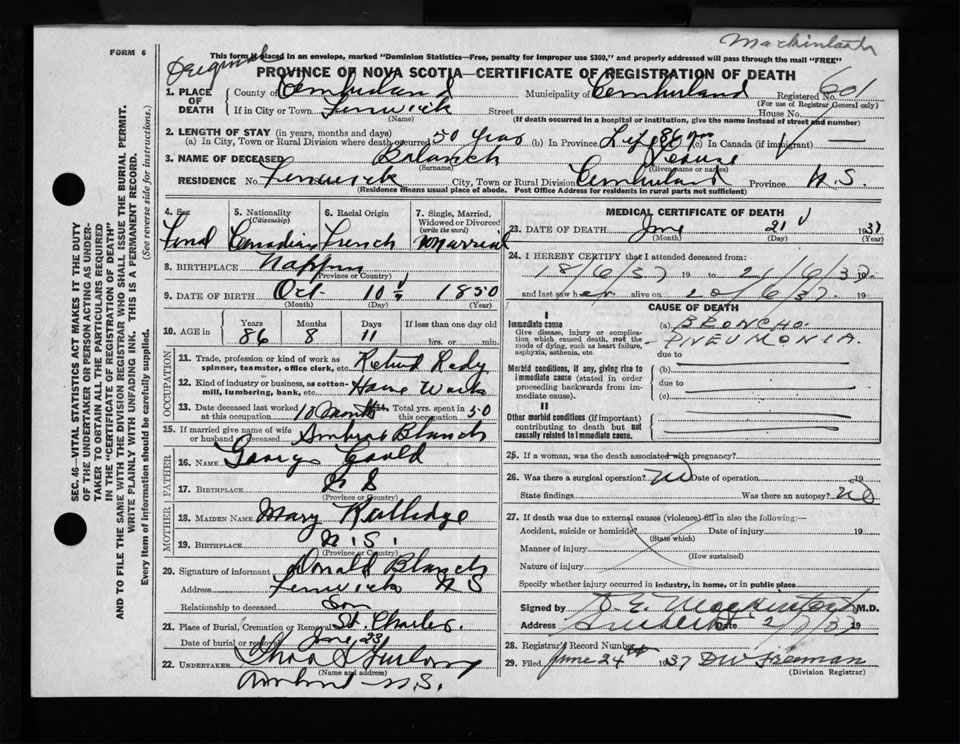 Mackintosh
FORM 6
This form if placed in an envelope, marked "Dominion Statistics—Free, penalty for improper use $300," and properly addressed will pass through the mail "FREE"
Original
PROVINCE OF NOVA SCOTIA—CERTIFICATE OF REGISTRATION OF DEATH
1. PLACE OF DEATH
County of Cumberland Municipality of Cumberland Registered No. 601
(For use of Registrar General only)
If in City or Town Fenwick Street House No.
(Name) (If death occurred in a hospital or institution, give the name instead of street and number)
2. LENGTH OF STAY (in years, months and days)
(a) In City, Town or Rural Division where death occurred 50 years (b) In Province Life 86 yrs (c) In Canada (if immigrant) —
3. NAME OF DECEASED Blanch
(Surname) (Given name or names)
RESIDENCE No. Fenwick City, Town or Rural Division Cumberland Province N.S.
(Residence means usual place of abode. Post Office Address for residents in rural parts not sufficient)
4. Sex 5. Nationality (Citizenship) 6. Racial Origin 7. Single, Married, Widowed or Divorced (write the word)
Femal Canadian French Married
8. BIRTHPLACE Nappan
(Province or Country)
9. DATE OF BIRTH Oct. 10 1850
(Month) (Day) (Year)
10. AGE in Years Months Days If less than one day old
86 8 11 hrs. or min.
OCCUPATION
11. Trade, profession or kind of work as spinner, teamster, office clerk, etc. Retired
12. Kind of industry or business, as cotton-mill, lumbering, bank, etc. House Work
13. Date deceased last worked at this occupation 10 Months Total yrs. spent in this occupation 50
15. If married give name of wife or husband of deceased Ambrose Blanch
FATHER
16. NAME George Gould
17. BIRTHPLACE N S
(Province or Country)
MOTHER
18. MAIDEN NAME Mary Rutledge
19. BIRTHPLACE N.S.
(Province or Country)
20. Signature of informant Donald Blanch
Address Fenwick N S
Relationship to deceased Son
21. Place of Burial, Cremation or Removal St. Charles.
Date of burial or removal June, 23
22. UNDERTAKER Furlong
(Name and address)
Amherst N.S.
MEDICAL CERTIFICATE OF DEATH
23. DATE OF DEATH June 21 1937
(Month) (Day) (Year)
24. I HEREBY CERTIFY that I attended deceased from:
18/6/37 19 to 21/6/37 19
and last saw her alive on 20/6/37 19
CAUSE OF DEATH
I
Immediate cause
Give disease, injury or complication which caused death, not the mode of dying, such as heart failure, asphyxia, asthenia, etc.
(a) BRONCHO-
PNEUMONIA.
due to
Morbid conditions, if any, giving rise to immediate cause (stated in order proceeding backwards from immediate cause).
(b)
due to
(c)
II
Other morbid conditions (if important) contributing to death but not causally related to immediate cause.
25. If a woman, was the death associated with pregnancy?
26. Was there a surgical operation? No Date of operation 19
State findings Was there an autopsy? No
27. If death was due to external causes (violence) fill in also the following:—
Accident, suicide or homicide? Date of injury 19
(State which)
Manner of injury
(How sustained)
Nature of injury
Specify whether injury occurred in industry, in home, or in public place
Signed by D. E. Mackintosh M.D.
Address Amherst Date 2/7/37 19
28. Registrar's Record Number
29. Filed June 24 1937 D W Freeman
(Division Registrar)
SEC. 46—VITAL STATISTICS ACT MAKES IT THE DUTY
OF THE UNDERTAKER OR PERSON ACTING AS UNDER-
TAKER TO OBTAIN ALL THE PARTICULARS REQUIRED
IN THE "CERTIFICATE OF REGISTRATION OF DEATH"
AND TO FILE THE SAME WITH THE DIVISION REGISTRAR WHO SHALL ISSUE THE BURIAL PERMIT.
WRITE PLAINLY WITH UNFADING INK. THIS IS A PERMANENT RECORD.
Every item of information should be carefully supplied. (See reverse side for instructions.)